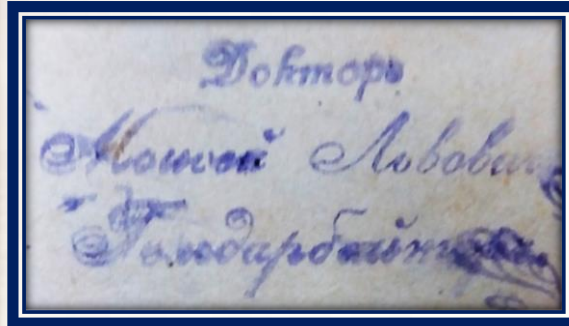 Докторъ
Моисей Львович
Гольдарбейтеръ